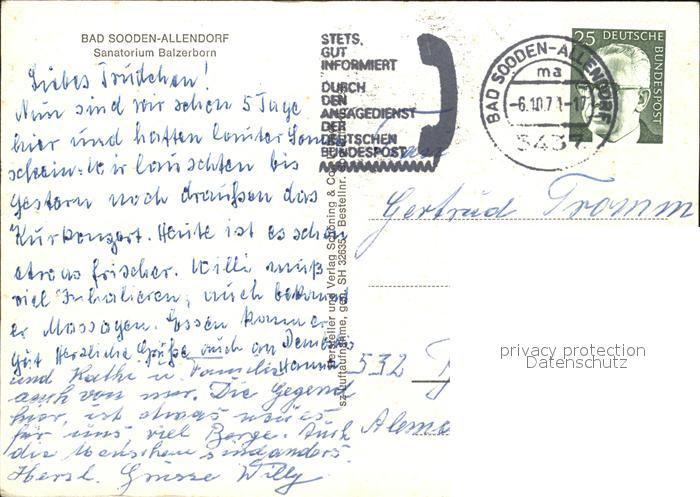 BAD SOODEN-ALLENDORF
Sanatorium Balzerborn
Liebes Trudchen!
Nun sind wir schon 5 Tage
hier und hatten lauter Sonnen
schein. Wir lauschten bis
gestern noch draußen das
Kurkonzert. Heute ist es schon
etwas frischer. Willi muß
viel Inhalieren, auch bekommt
er Massagen. Essen kann er
gut Herzliche Grüße auch an
und Käthe u. Familie
auch von mir. Die Gegend
hier, ist etwas neues
für uns, viel Berge. Auch
die Menschen sind anders.
Herzl. Grüsse Willy
STETS
GUT
INFORMIERT
DURCH
DEN
ANSAGEDIENST
DER
DEUTSCHEN
BUNDESPOST
BAD SOODEN-ALLENDORF
ma
-6.10.71-17
3437
25 DEUTSCHE
BUNDESPOST
Hersteller und Verlag Schöning & Co
Luftaufnahme, gen. SH 32635 Bestellnr.
Frau
Gertrud Tromm
532
privacy protection
Datenschutz